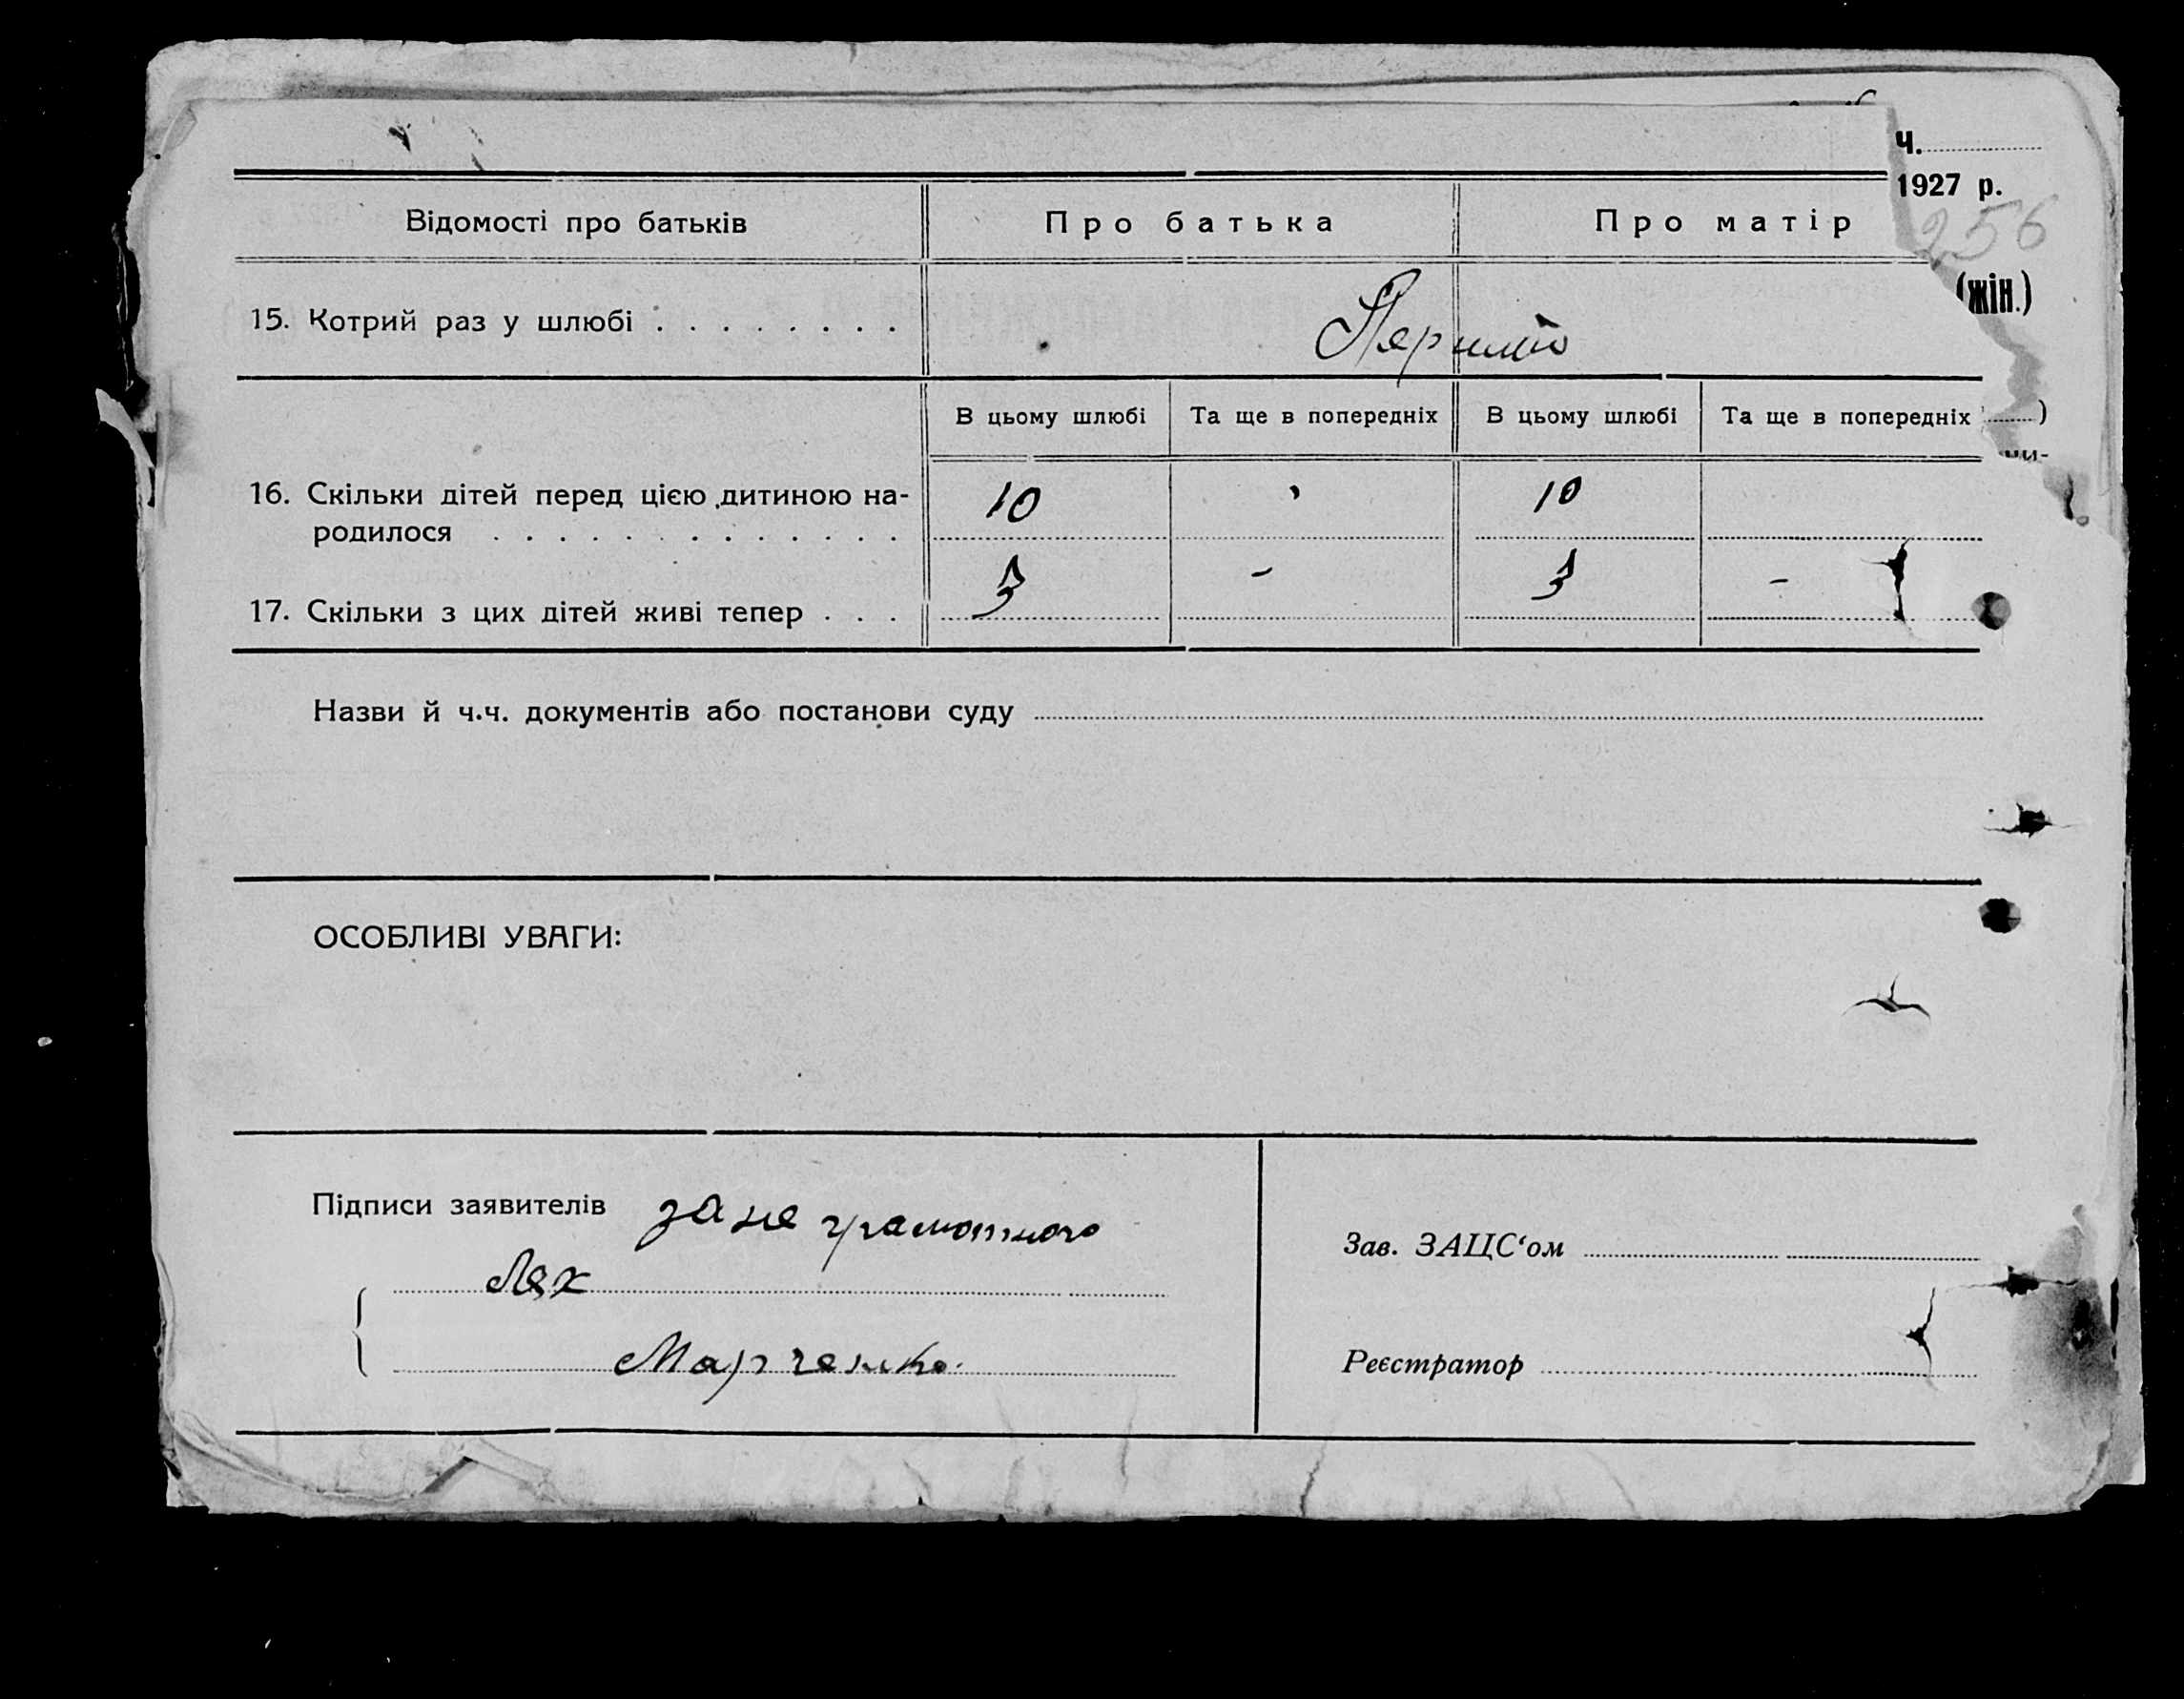 ч.
1927 р.
Відомості про батьків Про батька Про матір
256
(жін.)
15. Котрий раз у шлюбі
В цьому шлюбі Та ще в попередніх В цьому шлюбі Та ще в попередніх )
ни-
16. Скільки дітей перед цією дитиною на- 10 10
родилося
17. Скільки з цих дітей живі тепер . . . 3 - 3 -
Назви й ч.ч. документів або постанови суду
ОСОБЛИВІ УВАГИ:
Підписи заявителів за не грамотного
Лях
Зав. ЗАЦС‘ом
Марченко.
Реєстратор